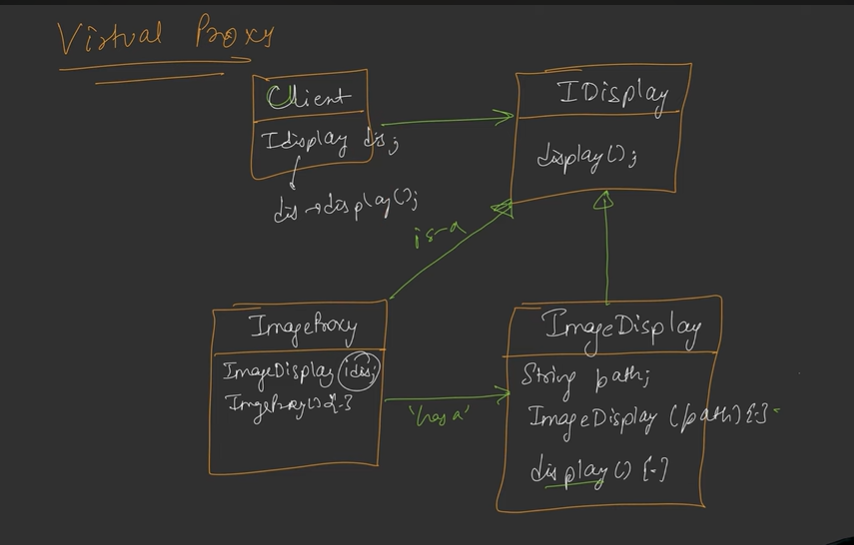 Virtual Proxy
Client
Idisplay dis;
dis→display();
IDisplay
display();
is-a
ImageProxy
ImageDisplay idis;
ImgeProxy(){-}
'has a'
ImageDisplay
String path;
ImageDisplay (path){-}
display() {-}